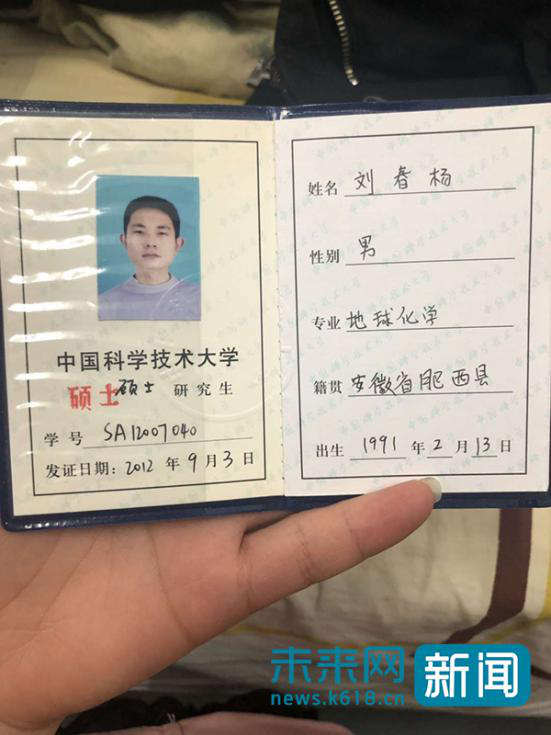 中国科学技术大学
硕士 硕士 研究生
学号 SA12007040
发证日期：2012 年 9 月 3 日
姓名 刘春杨
性别 男
专业 地球化学
籍贯 安徽省肥西县
出生 1991 年 2 月 13 日
未来网 新闻
news.k618.cn